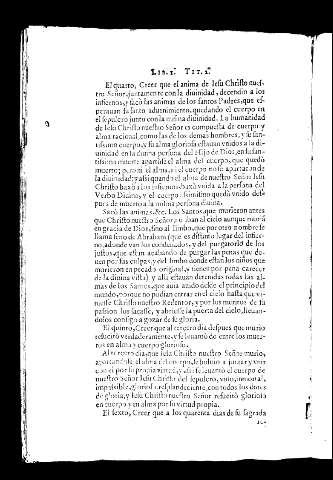 Lib. 1. Tit. 1.
El quarto, Creer que el anima de Iesu Christo nues-
tro Señor, juntamente con la diuinidad, decendio a los
infiernos, y sacò las animas de los santos Padres, que es-
perauan su santo aduenimiento, quedando el cuerpo en
el sepulcro junto con la misma diuinidad. La humanidad
de Iesu Christo nuestro Señor es compuesta de cuerpo y
alma racional, como las de los demas hombres, y su san-
tissimo cuerpo, y su alma gloriosa estauan vnidos a la di-
uinidad en la diuina persona del Hijo de Dios, en la san-
tissima muerte apartose el alma del cuerpo, que quedò
muerto; pero ni el alma, ni el cuerpo no se apartaron de
la diuinidad: y assi quando el alma de nuestro Señor Iesu
Christo baxò a los infiernos, baxò vnida a la persona del
Verbo Diuino, y el cuerpo santissimo quedò vnido des-
pues de muerto a la misma persona diuina.
Sacò las animas, &c. Los Santos, que murieron antes
que Christo nuestro Señor, no iban al cielo aunque morian
en gracia de Dios, sino al limbo, que por otro nombre se
llama seno de Abraham (que es distinto lugar del infier-
no, adonde van los condenados, y del purgatorio de los
justos, que estan acabando de purgar las penas que de-
uen por sus culpas, y del limbo donde estan los niños que
murieron en pecado original, y tienen por pena carecer
de la diuina vista) y alli estauan detenidas todas las al-
mas de los Santos, que auia auido desde el principio del
mundo, porque no podian entrar en el cielo hasta que vi-
niesse Christo nuestro Redentor, y por los meritos de su
passion los sacasse, y abriesse la puerta del cielo, lleuan-
dolos consigo a gozar de su gloria.
El quinto, Creer que al tercero dia despues que murio
resucitò verdaderamente, y se leuantò de entre los muer-
tos en alma y cuerpo glorioso.
Al tercero dia que Iesu Christo nuestro Señor murio,
apartandose el alma del cuerpo, se boluio a juntar y vnir
con el por su propia virtud, y assi se leuantò el cuerpo de
nuestro Señor Iesu Christo del sepulcro, viuo, inmortal,
impassible, glorioso, resplandeciente, con todos los dotes
de gloria, y Iesu Christo nuestro Señor resucitò glorioso
en cuerpo y en alma por su virtud propia.
El sexto, Creer que a los quarenta dias de su sagrada